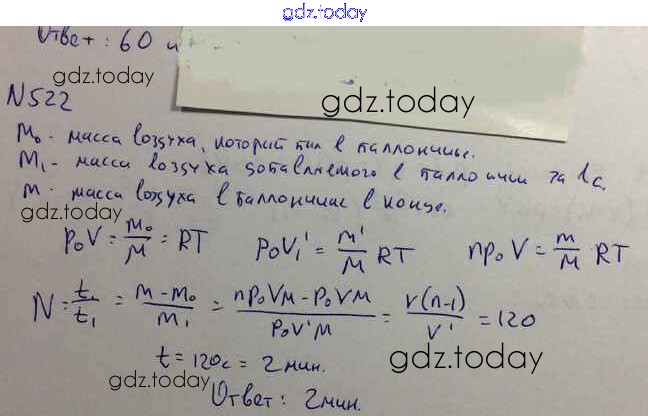 gdz.today
Ответ: 60
gdz.today
N522
gdz.today
m₀ - масса воздуха, который был в баллончике.
m₁ - масса воздуха добавляемого в баллончик за 1с.
m - масса воздуха в баллончике в конце.
gdz.today
p₀V = m₀/M = RT p₀V₁' = m'/M RT np₀V = m/M RT
gdz.today
gdz.today
N = t/t₁ = m-m₀/m₁ = np₀VM - p₀VM/p₀V'M = V(n-1)/V' = 120
t = 120с = 2 мин.
gdz.today
gdz.today
Ответ: 2мин.
gdz.today